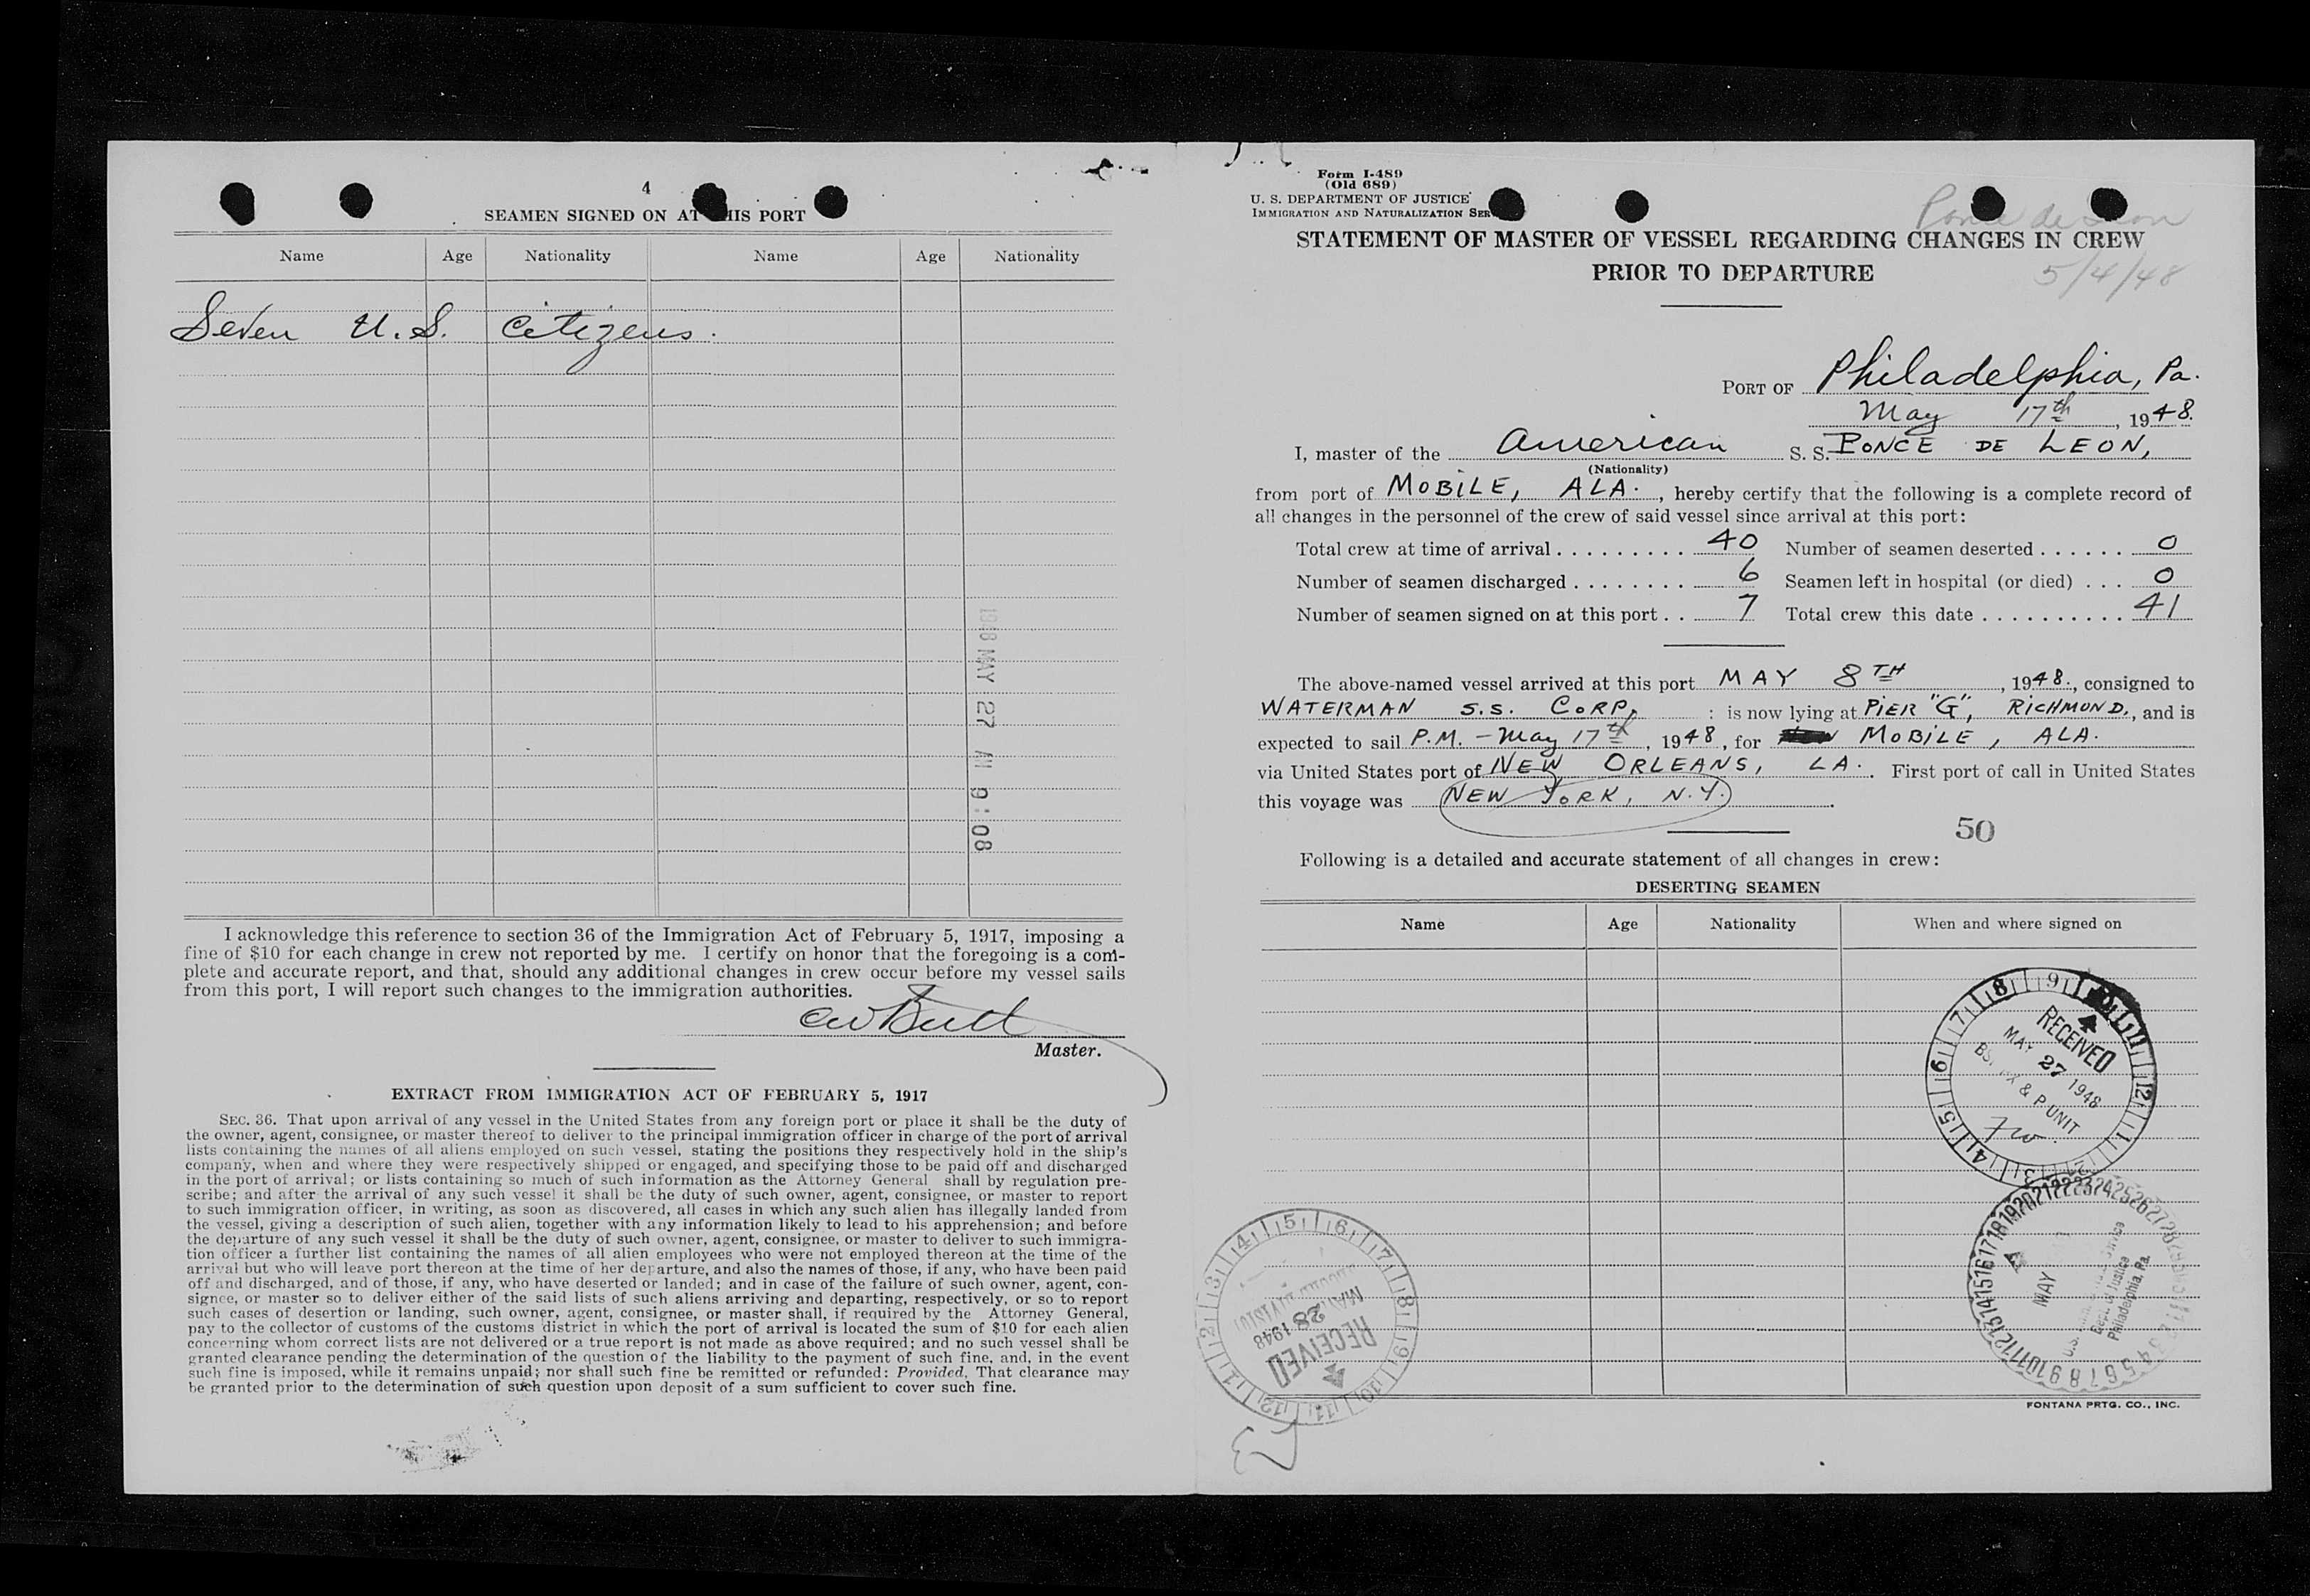 4
SEAMEN SIGNED ON AT THIS PORT
Name Age Nationality Name Age Nationality
Seven U.S. Citizens.
1948 MAY 27 AM 9:08
I acknowledge this reference to section 36 of the Immigration Act of February 5, 1917, imposing a
fine of $10 for each change in crew not reported by me. I certify on honor that the foregoing is a com-
plete and accurate report, and that, should any additional changes in crew occur before my vessel sails
from this port, I will report such changes to the immigration authorities.
Master.
EXTRACT FROM IMMIGRATION ACT OF FEBRUARY 5, 1917
SEC. 36. That upon arrival of any vessel in the United States from any foreign port or place it shall be the duty of
the owner, agent, consignee, or master thereof to deliver to the principal immigration officer in charge of the port of arrival
lists containing the names of all aliens employed on such vessel, stating the positions they respectively hold in the ship's
company, when and where they were respectively shipped or engaged, and specifying those to be paid off and discharged
in the port of arrival; or lists containing so much of such information as the Attorney General shall by regulation pre-
scribe; and after the arrival of any such vessel it shall be the duty of such owner, agent, consignee, or master to report
to such immigration officer, in writing, as soon as discovered, all cases in which any such alien has illegally landed from
the vessel, giving a description of such alien, together with any information likely to lead to his apprehension; and before
the departure of any such vessel it shall be the duty of such owner, agent, consignee, or master to deliver to such immigra-
tion officer a further list containing the names of all alien employees who were not employed thereon at the time of the
arrival but who will leave port thereon at the time of her departure, and also the names of those, if any, who have been paid
off and discharged, and of those, if any, who have deserted or landed; and in case of the failure of such owner, agent, con-
signee, or master so to deliver either of the said lists of such aliens arriving and departing, respectively, or so to report
such cases of desertion or landing, such owner, agent, consignee, or master shall, if required by the Attorney General,
pay to the collector of customs of the customs district in which the port of arrival is located the sum of $10 for each alien
concerning whom correct lists are not delivered or a true report is not made as above required; and no such vessel shall be
granted clearance pending the determination of the question of the liability to the payment of such fine, and, in the event
such fine is imposed, while it remains unpaid; nor shall such fine be remitted or refunded: Provided, That clearance may
be granted prior to the determination of such question upon deposit of a sum sufficient to cover such fine.
Form I-489
(Old 689)
U. S. DEPARTMENT OF JUSTICE
IMMIGRATION AND NATURALIZATION SER
Ponce de Leon
STATEMENT OF MASTER OF VESSEL REGARDING CHANGES IN CREW
PRIOR TO DEPARTURE
5/4/48
PORT OF Philadelphia, Pa.
May 17th, 1948.
I, master of the American S. S. PONCE DE LEON,
(Nationality)
from port of MOBILE, ALA., hereby certify that the following is a complete record of
all changes in the personnel of the crew of said vessel since arrival at this port:
Total crew at time of arrival . . . . . . . . . 40 Number of seamen deserted . . . . . . 0
Number of seamen discharged . . . . . . . . 6 Seamen left in hospital (or died) . . . 0
Number of seamen signed on at this port . . 7 Total crew this date . . . . . . . . . . 41
The above-named vessel arrived at this port MAY 8TH, 1948., consigned to
WATERMAN S.S. CORP. : is now lying at PIER "G", RICHMOND., and is
expected to sail P.M. - May 17th, 1948, for MOBILE, ALA.
via United States port of NEW ORLEANS, LA. First port of call in United States
this voyage was NEW YORK, N.Y.
50
Following is a detailed and accurate statement of all changes in crew:
DESERTING SEAMEN
Name Age Nationality When and where signed on
RECEIVED
MAY 27 1948
& P UNIT
MAY
Dept. of Justice
Philadelphia, Pa.
RECEIVED
28 1948
FONTANA PRTG. CO., INC.